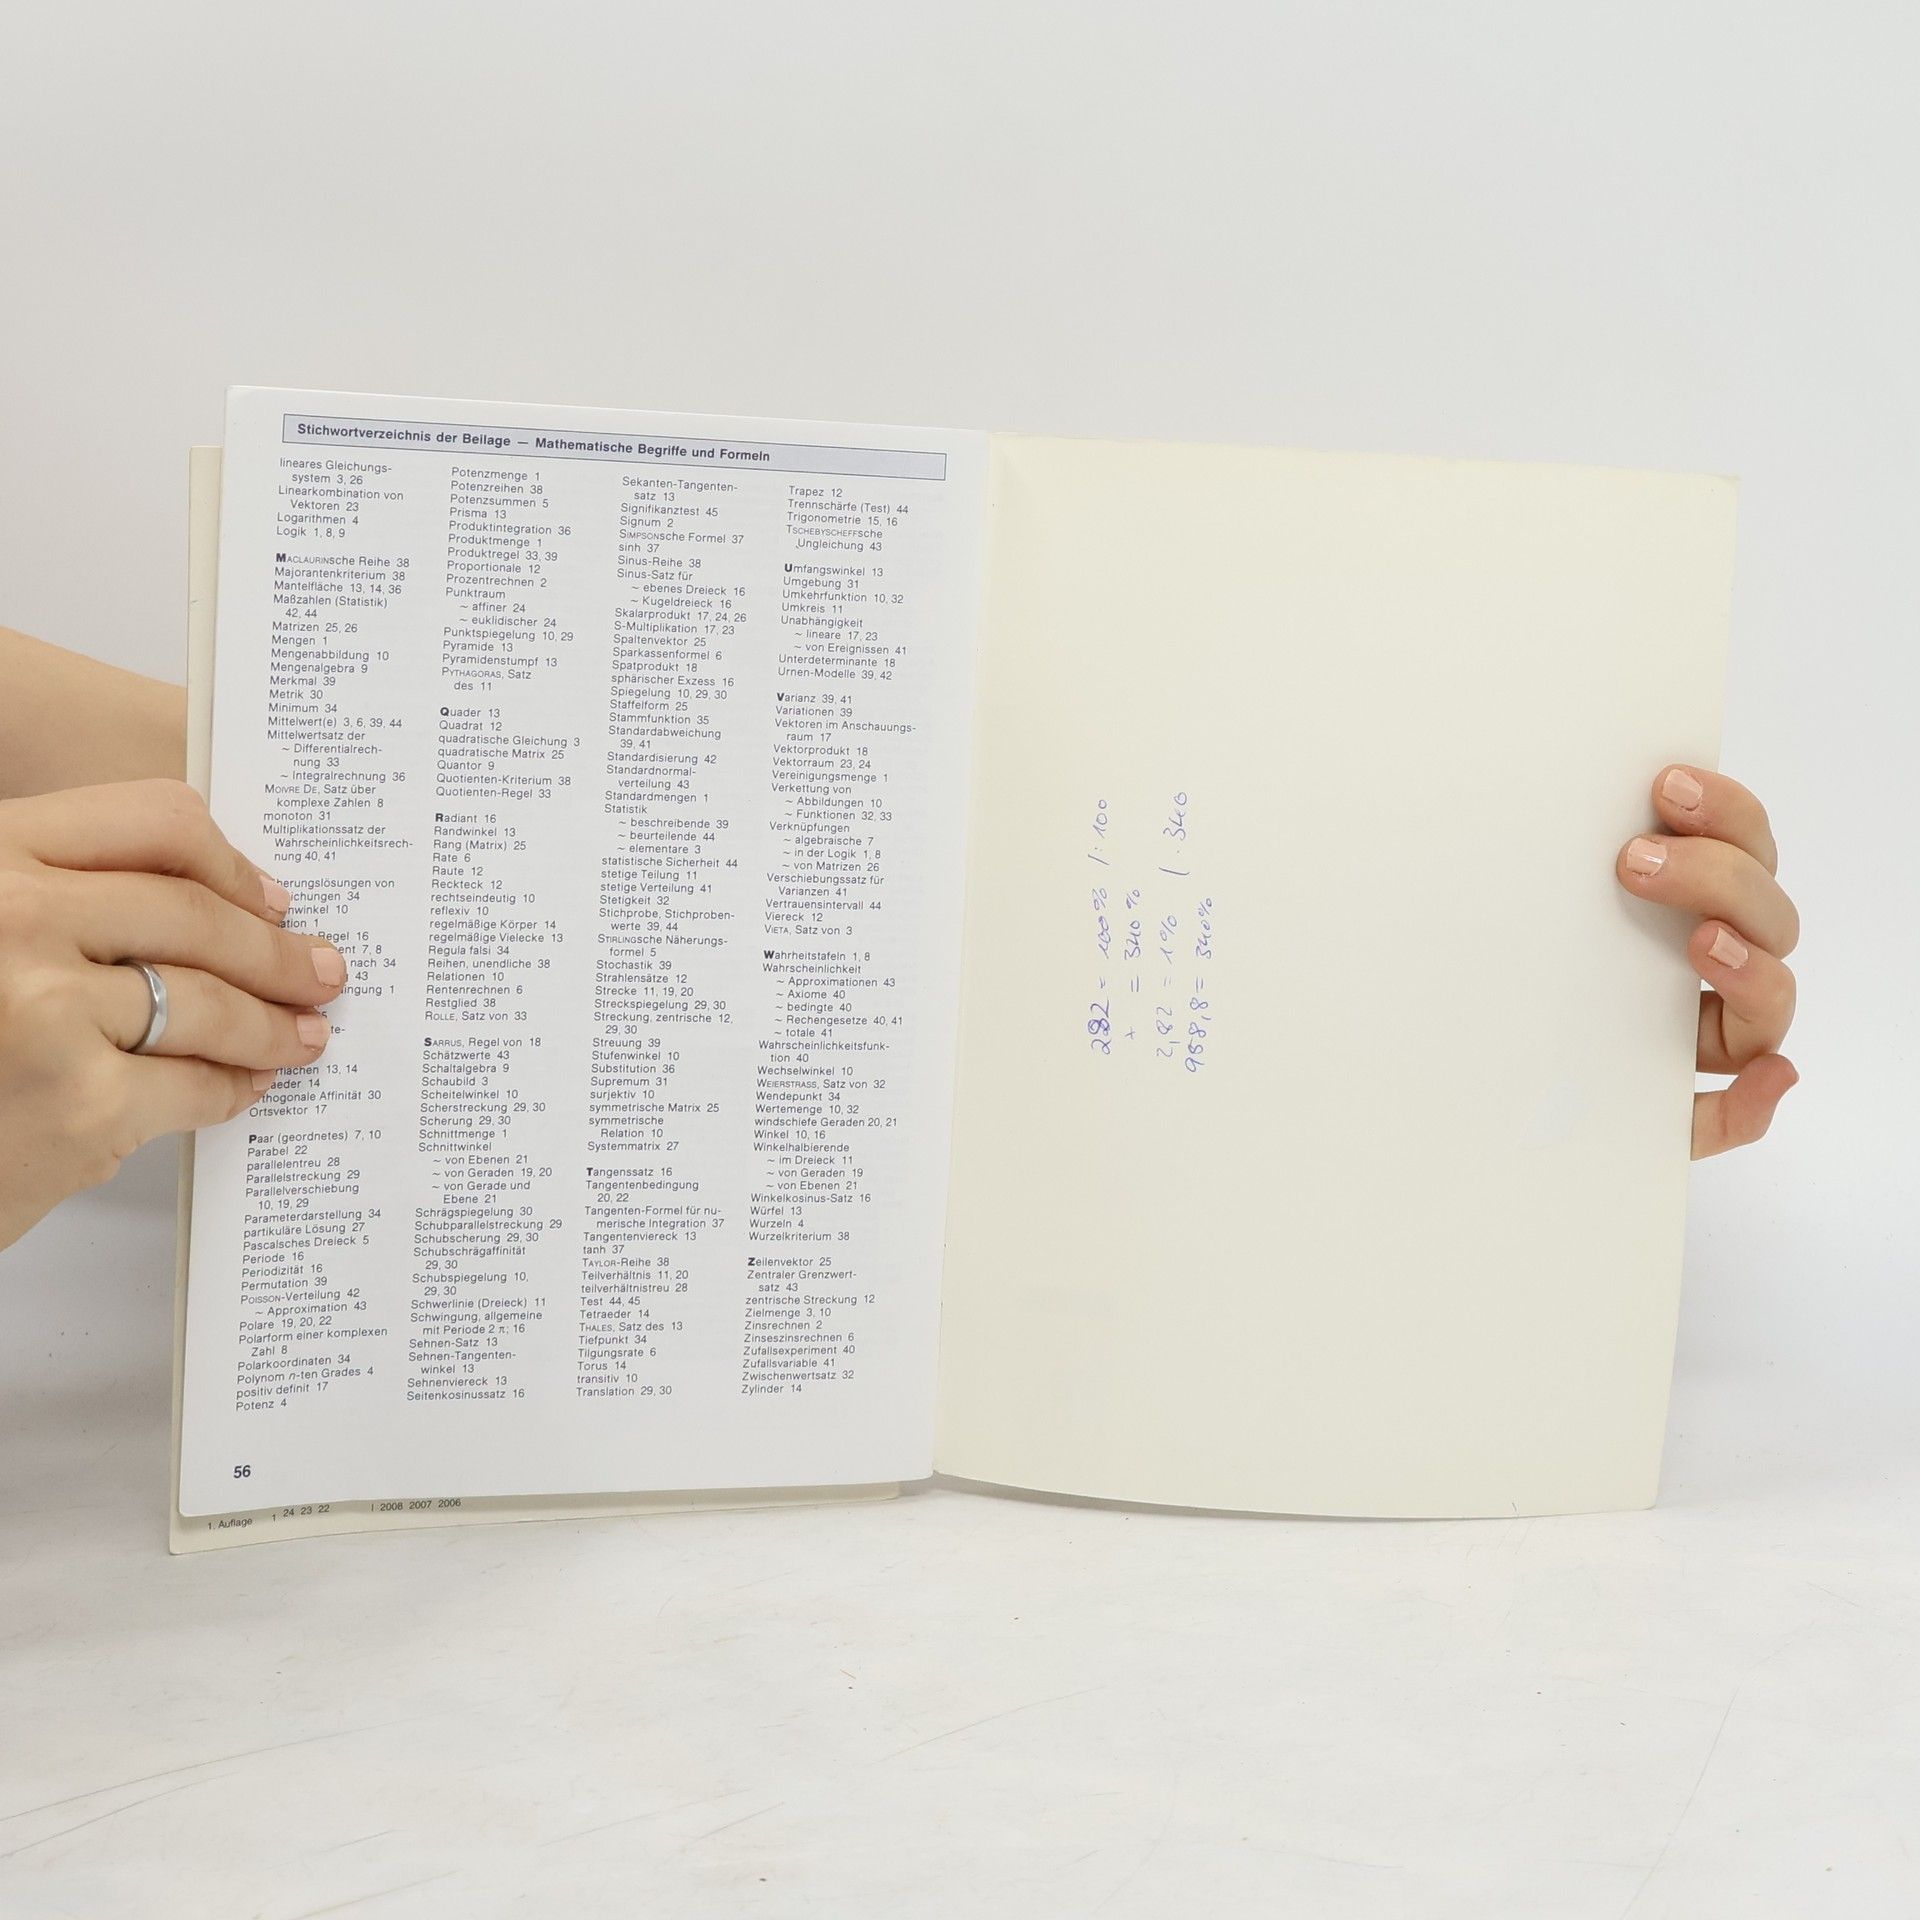 Stichwortverzeichnis der Beilage — Mathematische Begriffe und Formeln
lineares Gleichungs-
system 3, 26
Linearkombination von
Vektoren 23
Logarithmen 4
Logik 1, 8, 9
MACLAURINsche Reihe 38
Majorantenkriterium 38
Mantelfläche 13, 14, 36
Maßzahlen (Statistik)
42, 44
Matrizen 25, 26
Mengen 1
Mengenabbildung 10
Mengenalgebra 9
Merkmal 39
Metrik 30
Minimum 34
Mittelwert(e) 3, 6, 39, 44
Mittelwertsatz der
~ Differentialrech-
nung 33
~ Integralrechnung 36
MOIVRE DE, Satz über
komplexe Zahlen 8
monoton 31
Multiplikationssatz der
Wahrscheinlichkeitsrech-
nung 40, 41
herungslösungen von
ichungen 34
nwinkel 10
ation 1
Regel 16
ent 7, 8
nach 34
43
ingung 1
te-
rflächen 13, 14
aeder 14
rthogonale Affinität 30
Ortsvektor 17
Paar (geordnetes) 7, 10
Parabel 22
parallelentreu 28
Parallelstreckung 29
Parallelverschiebung
10, 19, 29
Parameterdarstellung 34
partikuläre Lösung 27
Pascalsches Dreieck 5
Periode 16
Periodizität 16
Permutation 39
POISSON-Verteilung 42
~ Approximation 43
Polare 19, 20, 22
Polarform einer komplexen
Zahl 8
Polarkoordinaten 34
Polynom n-ten Grades 4
positiv definit 17
Potenz 4
Potenzmenge 1
Potenzreihen 38
Potenzsummen 5
Prisma 13
Produktintegration 36
Produktmenge 1
Produktregel 33, 39
Proportionale 12
Prozentrechnen 2
Punktraum
~ affiner 24
~ euklidischer 24
Punktspiegelung 10, 29
Pyramide 13
Pyramidenstumpf 13
PYTHAGORAS, Satz
des 11
Quader 13
Quadrat 12
quadratische Gleichung 3
quadratische Matrix 25
Quantor 9
Quotienten-Kriterium 38
Quotienten-Regel 33
Radiant 16
Randwinkel 13
Rang (Matrix) 25
Rate 6
Raute 12
Reckteck 12
rechtseindeutig 10
reflexiv 10
regelmäßige Körper 14
regelmäßige Vielecke 13
Regula falsi 34
Reihen, unendliche 38
Relationen 10
Rentenrechnen 6
Restglied 38
ROLLE, Satz von 33
SARRUS, Regel von 18
Schätzwerte 43
Schaltalgebra 9
Schaubild 3
Scheitelwinkel 10
Scherstreckung 29, 30
Scherung 29, 30
Schnittmenge 1
Schnittwinkel
~ von Ebenen 21
~ von Geraden 19, 20
~ von Gerade und
Ebene 21
Schrägspiegelung 30
Schubparallelstreckung 29
Schubscherung 29, 30
Schubschrägaffinität
29, 30
Schubspiegelung 10,
29, 30
Schwerlinie (Dreieck) 11
Schwingung, allgemeine
mit Periode 2 π; 16
Sehnen-Satz 13
Sehnen-Tangenten-
winkel 13
Sehnenviereck 13
Seitenkosinussatz 16
Sekanten-Tangenten-
satz 13
Signifikanztest 45
Signum 2
SIMPSONsche Formel 37
sinh 37
Sinus-Reihe 38
Sinus-Satz für
~ ebenes Dreieck 16
~ Kugeldreieck 16
Skalarprodukt 17, 24, 26
S-Multiplikation 17, 23
Spaltenvektor 25
Sparkassenformel 6
Spatprodukt 18
sphärischer Exzess 16
Spiegelung 10, 29, 30
Staffelform 25
Stammfunktion 35
Standardabweichung
39, 41
Standardisierung 42
Standardnormal-
verteilung 43
Standardmengen 1
Statistik
~ beschreibende 39
~ beurteilende 44
~ elementare 3
statistische Sicherheit 44
stetige Teilung 11
stetige Verteilung 41
Stetigkeit 32
Stichprobe, Stichproben-
werte 39, 44
STIRLINGsche Näherungs-
formel 5
Stochastik 39
Strahlensätze 12
Strecke 11, 19, 20
Streckspiegelung 29, 30
Streckung, zentrische 12,
29, 30
Streuung 39
Stufenwinkel 10
Substitution 36
Supremum 31
surjektiv 10
symmetrische Matrix 25
symmetrische
Relation 10
Systemmatrix 27
Tangenssatz 16
Tangentenbedingung
20, 22
Tangenten-Formel für nu-
merische Integration 37
Tangentenviereck 13
tanh 37
TAYLOR-Reihe 38
Teilverhältnis 11, 20
teilverhältnistreu 28
Test 44, 45
Tetraeder 14
THALES, Satz des 13
Tiefpunkt 34
Tilgungsrate 6
Torus 14
transitiv 10
Translation 29, 30
Trapez 12
Trennschärfe (Test) 44
Trigonometrie 15, 16
TSCHEBYSCHEFFsche
Ungleichung 43
Umfangswinkel 13
Umgebung 31
Umkehrfunktion 10, 32
Umkreis 11
Unabhängigkeit
~ lineare 17, 23
~ von Ereignissen 41
Unterdeterminante 18
Urnen-Modelle 39, 42
Varianz 39, 41
Variationen 39
Vektoren im Anschauungs-
raum 17
Vektorprodukt 18
Vektorraum 23, 24
Vereinigungsmenge 1
Verkettung von
~ Abbildungen 10
~ Funktionen 32, 33
Verknüpfungen
~ algebraische 7
~ in der Logik 1, 8
~ von Matrizen 26
Verschiebungssatz für
Varianzen 41
Vertrauensintervall 44
Viereck 12
VIETA, Satz von 3
Wahrheitstafeln 1, 8
Wahrscheinlichkeit
~ Approximationen 43
~ Axiome 40
~ bedingte 40
~ Rechengesetze 40, 41
~ totale 41
Wahrscheinlichkeitsfunk-
tion 40
Wechselwinkel 10
WEIERSTRASS, Satz von 32
Wendepunkt 34
Wertemenge 10, 32
windschiefe Geraden 20, 21
Winkel 10, 16
Winkelhalbierende
~ im Dreieck 11
~ von Geraden 19
~ von Ebenen 21
Winkelkosinus-Satz 16
Würfel 13
Wurzeln 4
Wurzelkriterium 38
Zeilenvektor 25
Zentraler Grenzwert-
satz 43
zentrische Streckung 12
Zielmenge 3, 10
Zinsrechnen 2
Zinseszinsrechnen 6
Zufallsexperiment 40
Zufallsvariable 41
Zwischenwertsatz 32
Zylinder 14
56
1. Auflage 1 24 23 22 | 2008 2007 2006
282 = 100% /:100
x = 340%
2,82 = 1% | · 340
958,8 = 340%